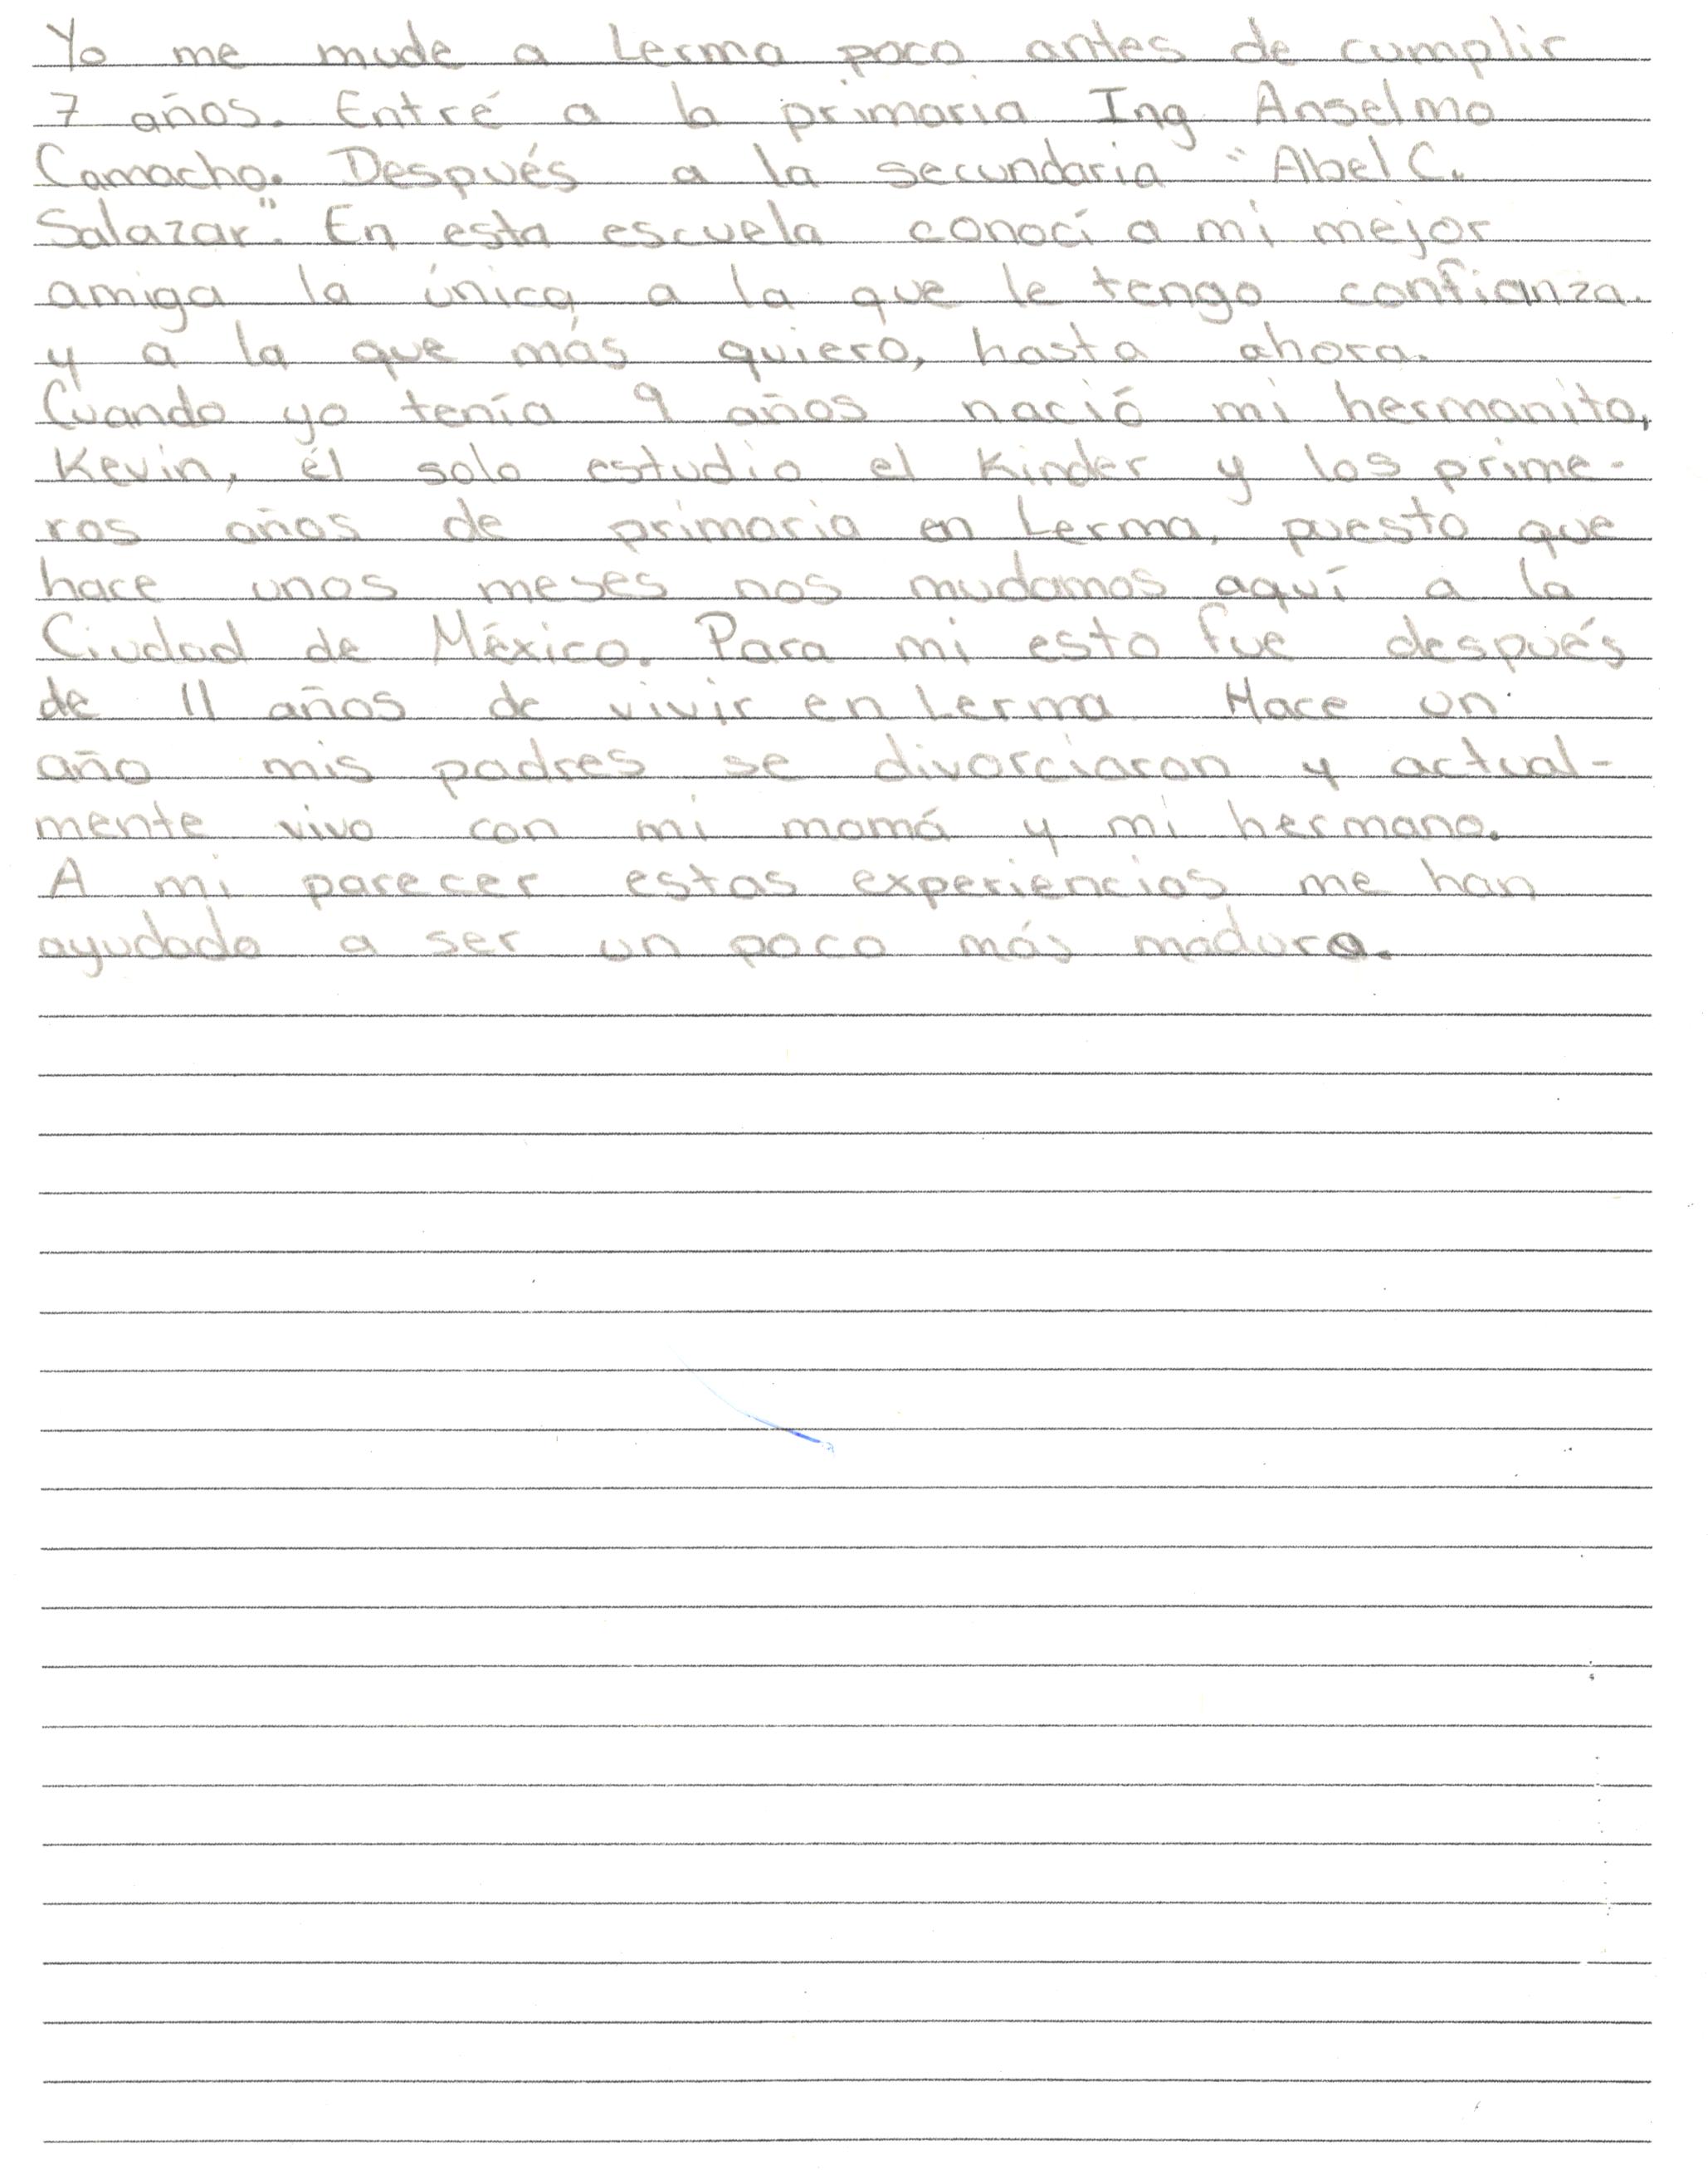 Yo me mude a Lerma poco antes de cumplir
7 años. Entré a la primaria Ing Anselmo
Camacho. Después a la secundaria "Abel C.
Salazar". En esta escuela conocí a mi mejor
amiga la única a la que le tengo confianza.
y a la que más quiero, hasta ahora.
Cuando yo tenía 9 años nació mi hermanito,
Kevin, él solo estudio el Kinder y los prime-
ros años de primaria en Lerma, puesto que
hace unos meses nos mudamos aquí a la
Ciudad de México. Para mi esto fue después
de 11 años de vivir en Lerma. Hace un
año mis padres se divorciaron y actual-
mente vivo con mi mamá y mi hermano.
A mi parecer estas experiencias me han
ayudado a ser un poco más madura.